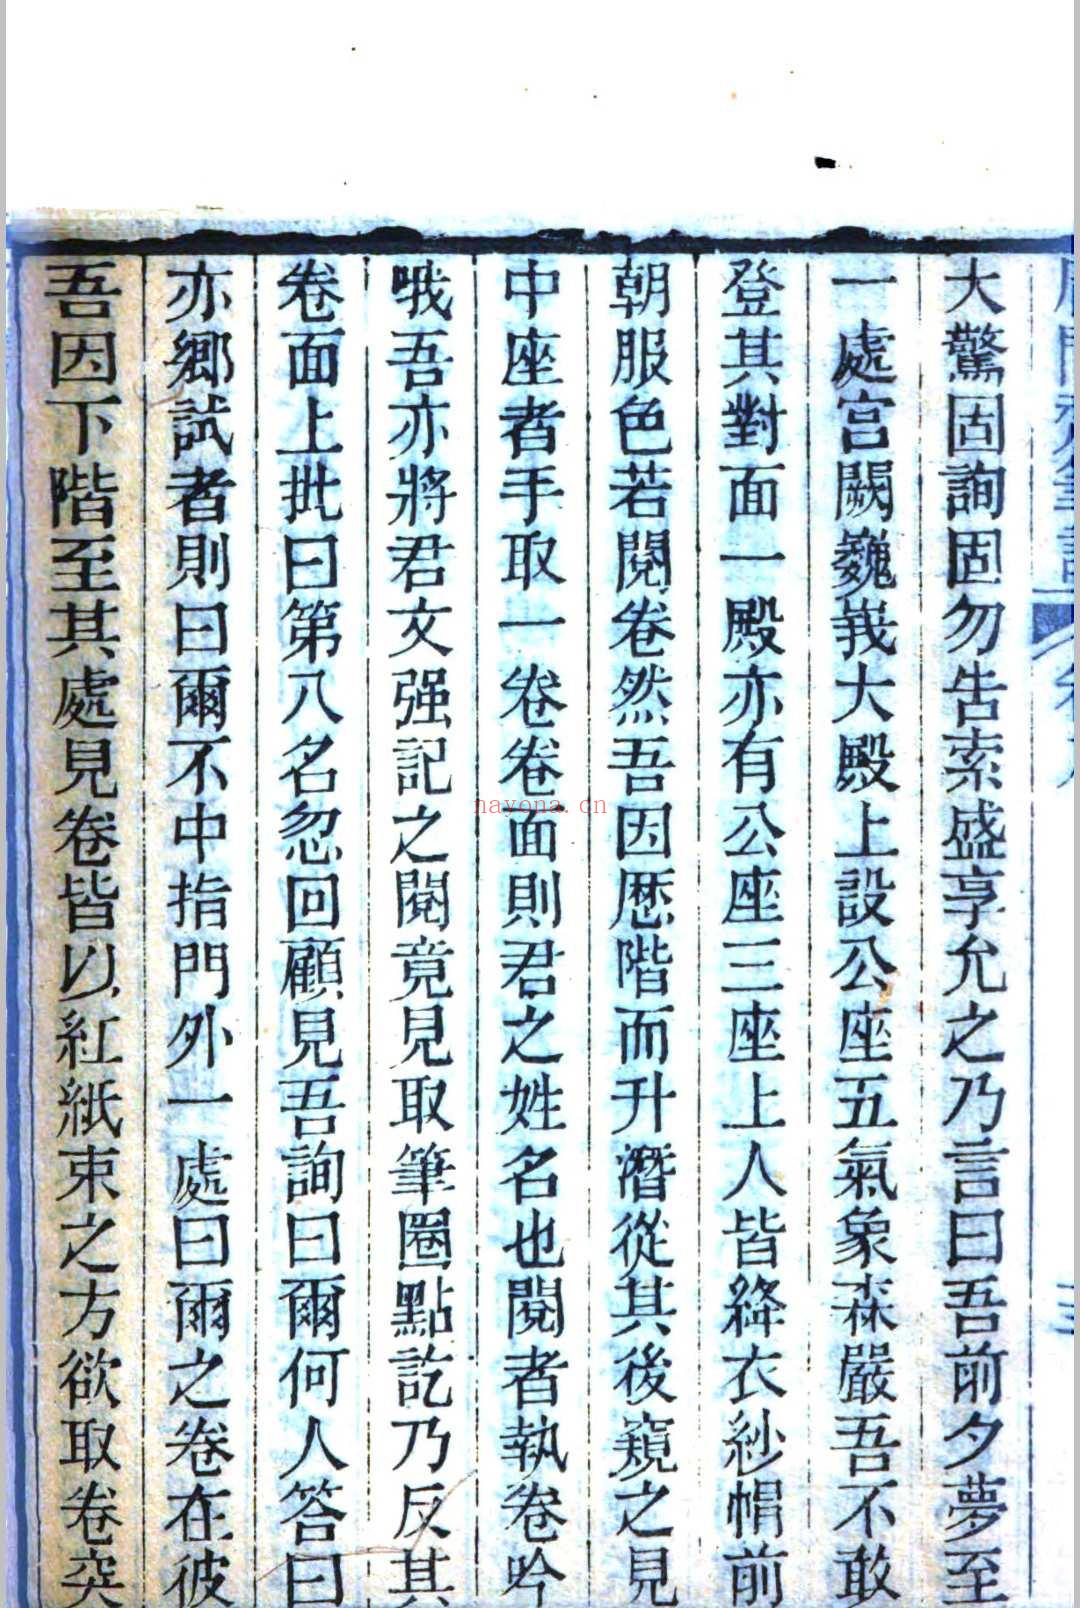 大驚固詢固勿告索盛享允之乃言曰吾前夕夢至
一處宮闕巍峩大殿上設公座五氣象森嚴吾不敢
登其對面一殿亦有公座三座上人皆絳衣紗帽前
朝服色若閱卷然吾因歷階而升潛從其後窺之見
中座者手取一卷卷面則君之姓名也閱者執卷吟
哦吾亦將君文强記之閱竟見取筆圈點訖乃反其
卷面上批曰第八名忽回顧見吾詢曰爾何人答曰
亦鄉試者則曰爾不中指門外一處曰爾之卷在彼
吾因下階至其處見卷皆以紅紙束之方欲取卷突
nayona.cn